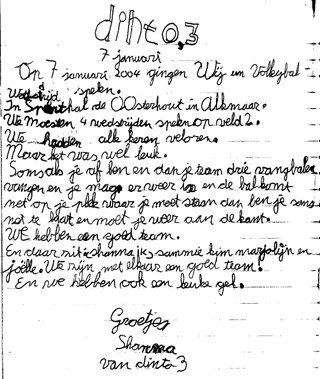 dinto,3
7 januari
Op 7 januari 2004 gingen Wij een Volleybal-
Wedstrijd spelen.
In Sporthal de Oosterhout in Alkmaar.
We Moesten 4 wedstrijden spelen op veld 2.
We hadden alle keren veloren.
Maar het was wel leuk.
Soms als je af ben en dan je team drie vangballen
vangen en je mag er weer in en de bal komt
net op je plek waar je moet staan dan ben je soms
net te laat en moet je weer aan de kant.
WE hebben een goed team.
En daar zit: shanna, ik, sammie kim marjolijn en
joëlle. We zijn met elkaar een goed team.
En we hebben ook een leuke gel.
Groetjes
Shanna
van dinto 3